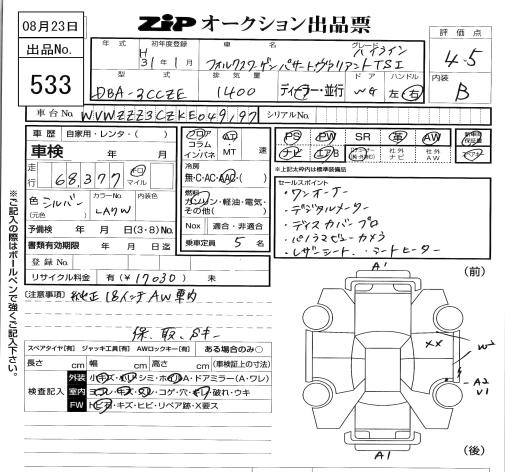 08月23日
ZIP オークション出品票
出品No.
533
年式 初年度登録 車名 グレード
H 31年 1月 フォルクスワーゲン パサートヴァリアント TSI ハイライン
評価点
4.5
型式 排気量 ドア ハンドル
DBA-3CCZE 1400 ディーラー・並行 WG 左・右
内装
B
車台No. WVWZZZ3CZKE049,97 シリアルNo.
車歴 自家用・レンタ・( )
車検 年 月
走行 68,377 キロ マイル
色 シルバー (元色) カラーNo. LA7W
予備検 年 月 日 (3・8) No.
書類有効期限 年 月 日迄
登録No.
リサイクル料金 有(¥17030) 未
フロア コラム インパネ AT・MT 速
冷房
無・C・AC・AAC・( )
燃料
ガソリン・軽油・電気・その他( )
Nox 適合・非適合
乗車定員 5 名
PS PW SR 革 AW 新車時保証書
ナビ エアB 社外ナビ 社外AW
※上記太枠内は標準装備品
セールスポイント
・ワンオーナー
・デジタルメーター
・ディスカバープロ
・パノラマビューカメラ
・レザーシート・シートヒーター
[注意事項] 純正18インチAW車内
保、取、Sキー
スペアタイヤ[有] ジャッキ工具[有] AWロックキー[有] ある場合のみ○
長さ cm 幅 cm 高さ cm (車検証上の寸法)
検査記入
外装 小キズ・凹・シミ・ホイルA・ドアミラー(A・ワレ)
室内 ヨゴレ・キズ・スレ・コゲ・穴・破れ・ウキ
FW トビ石・キズ・ヒビ・リペア跡・X要ス
※ご記入の際はボールペンで強くご記入下さい。
(前)
A1
XX
W2
A2
U1
A1
(後)